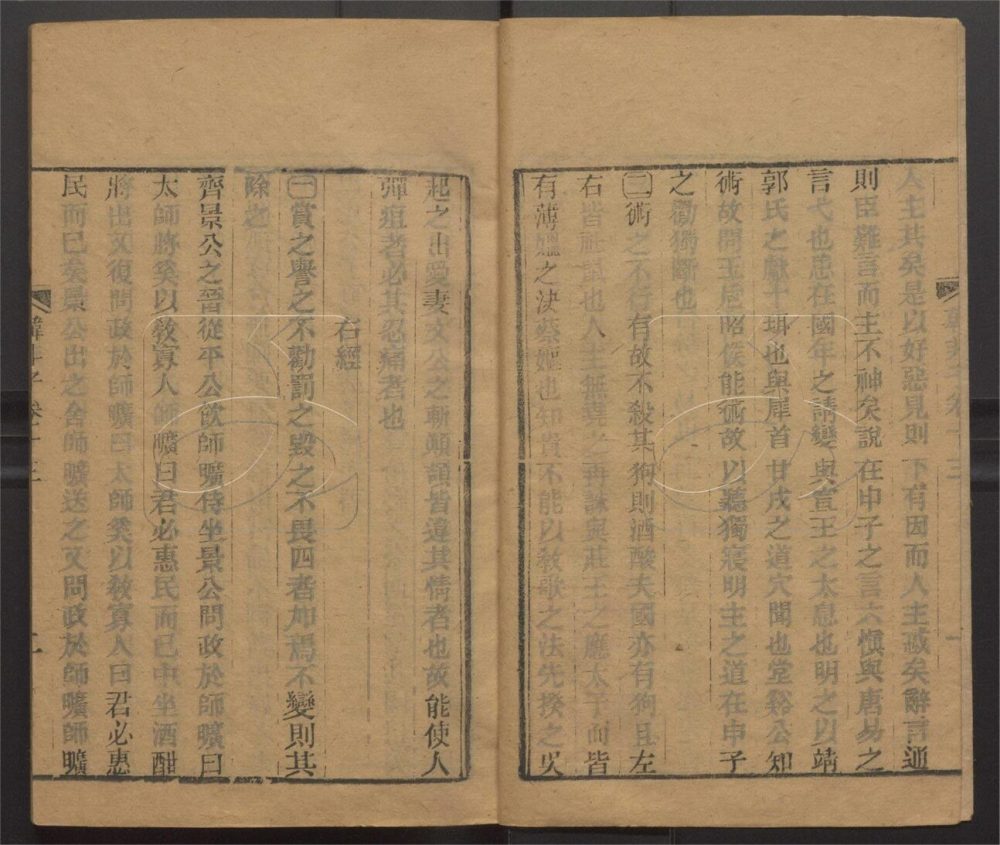 人主共矣是以好惡見則下有因而人主惑矣辭言通
則臣難言而主不神矣說在申子之言六愼與唐易之
言弋也患在國年之請變與宣王之太息也明之以靖
郭氏之獻十珥也與犀首甘戊之道穴聞也堂谿公知
術故問玉卮昭侯能術故以聽獨寢明主之道在申子
之勸獨斷也
三術之不行有故不殺其狗則酒酸夫國亦有狗且左
右皆社鼠也人主無堯之再誅與莊王之應太子而皆
有薄媼之決蔡嫗也知貴不能以教歌之法先揆之吳
起之出愛妻文公之斬顛頡皆違其情者也故能使人
彈疽者必其忍痛者也
右經
一賞之譽之不勸罰之毀之不畏四者加焉不變則其
除之
齊景公之晉從平公飲師曠侍坐景公問政於師曠曰
太師將奚以教寡人師曠曰君必惠民而已中坐酒酣
將出又復問政於師曠曰太師奚以教寡人曰君必惠
民而已矣景公出之舍師曠送之又問政於師曠師曠
韓非子 卷十三
二